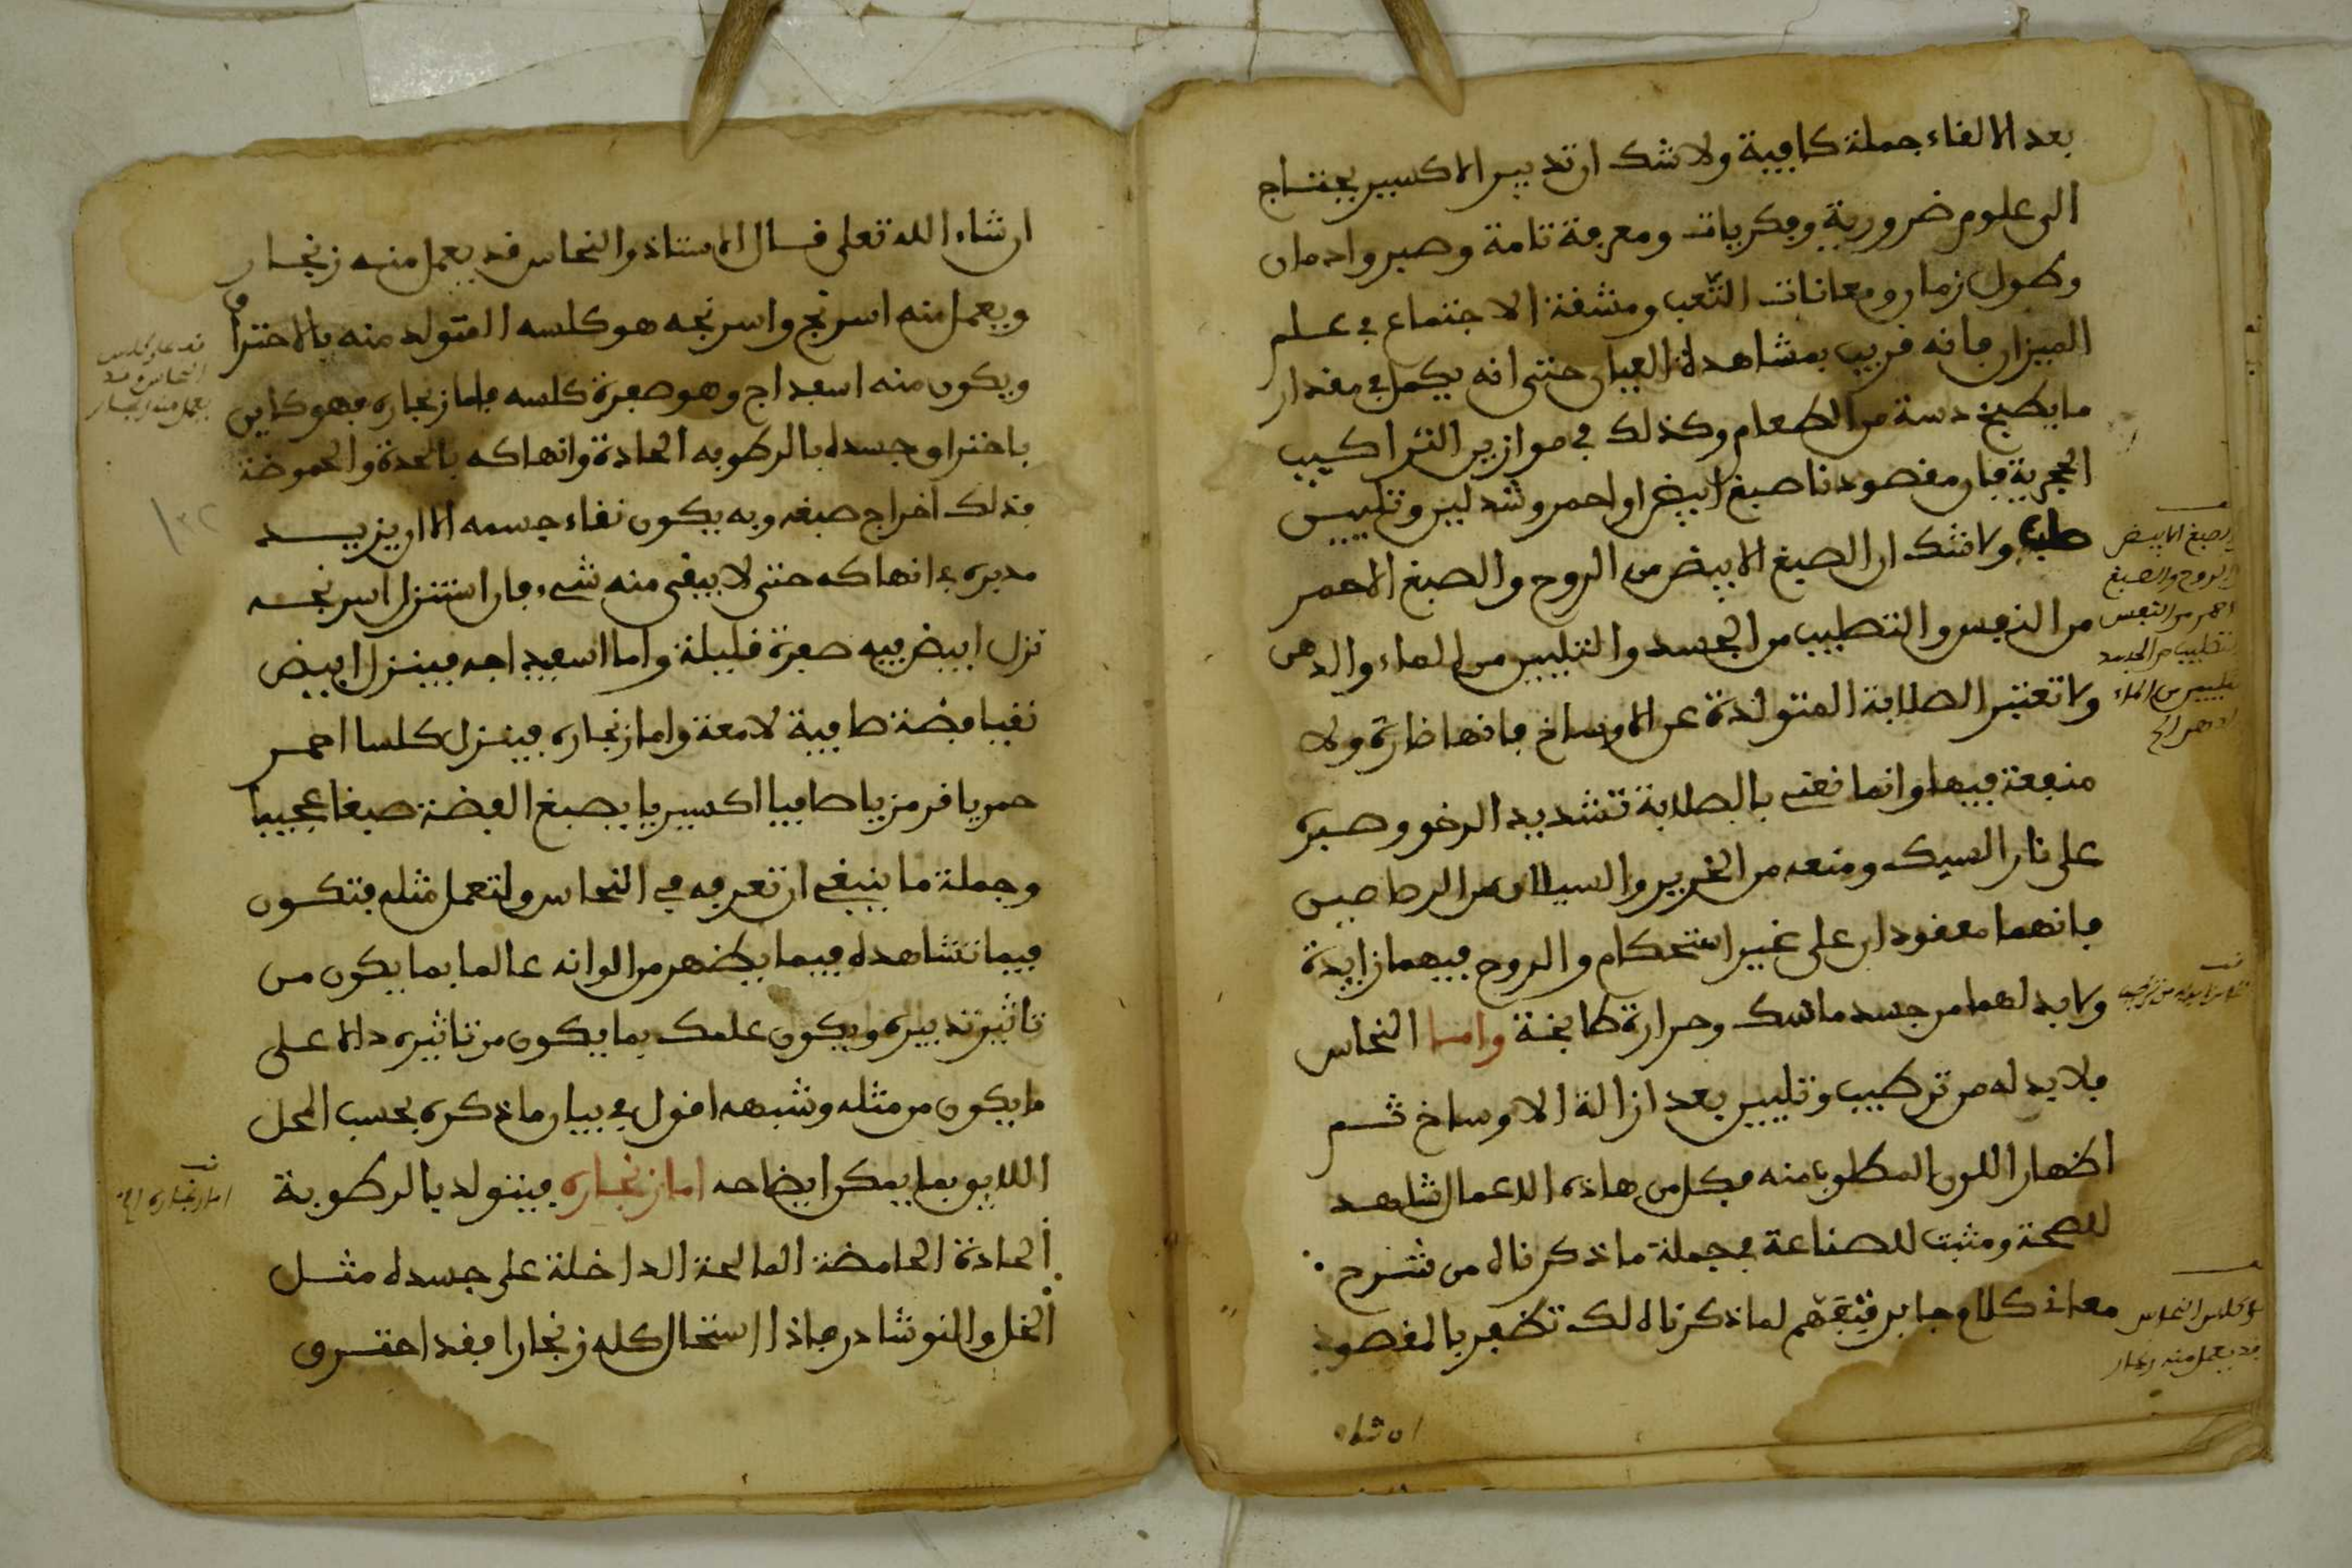 بعد الالقاء جملة كافية ولا شك ان تدبير الاكسير يحتاج
الى علوم ضرورية وفكريات ومعرفة تامة وصبر وادمان
وطول زمان ومعانات التعب ومشقة الاجتماع في علم
الميزان فانه قريب بمشاهدة العيان حتى انه يكمل في مقدار
ما يطبخ دسة من الطعام وكذلك في موازين التراكيب
الحجرية فان مقصودنا صبغ ابيض او احمر وشد لين وتليين
صلب ولا شك ان الصبغ الابيض من الروح والصبغ الاحمر
من النفس والتصليب من الجسد والتليين من الماء والدهن
ولا تعتبر الصلابة المتولدة عن الاوساخ فانها ضارة ولا
منفعة فيها وانما نعني بالصلابة تشديد الرخو وصبره
على نار السبك ومنعه من الخرير والسيلان من الرصاصين
فانهما معقودان على غير استحكام والروح فيهما زايدة
ولا بد لهما من جسد ماسك وحرارة طابخة واما النحاس
فلا بد له من ترطيب وتليين بعد ازالة الاوساخ ثم
اظهار اللون المطلوب منه فكل من هاذه الاعمال شاهد
للصحة ومثبت للصناعة فجملة ما ذكرناه من شرح
معاني كلام جابر فتفهم لما ذكرناه لك تظفر بالمقصود
ان شاء
الصبغ الابيض
الروح والصبغ
احمر من النفس
والتصليب من الجسد
تليين من الماء
الدهن الخ
كلس النحاس
قد يعمل منه زنجار
ان شاء الله تعلى قال الاستاذ والنحاس قد يعمل منه زنجار
ويعمل منه اسرنج واسرنجه هو كلسه المتولد منه بالاحتراق
ويكون منه اسفداج وهو صفرة كلسه فاما زنجاره فهو كاين
باحتراق جسده بالرطوبه الحادة وانهاكه بالحدة والحموضة
فذلك اخراج صبغه وبه يكون نقاء جسمه الا ان يزيد
مدبره في انهاكه حتى لا يبقى منه شيء فان استنزل اسرنجه
نزل ابيض فيه صفرة قليلة واما اسفيداجه فينزل ابيض
نقيا فضة صافية لامعة واما زنجاره فينزل كلسا احمر
حمريا قرمزيا صافيا اكسيريا يصبغ الفضة صبغا عجيبا
وجملة ما ينبغي ان تعرفه في النحاس ولتعمل مثله فتكون
فيما تشاهده فيما يظهر من الوانه عالما بما يكون من
تاثير تدبيره ويكون علمك بما يكون من تاثيره دالا على
ما يكون من مثله وشبهه اقول في بيان ما ذكره بحسب المحل
اللايق بما يمكن ايضاحه اما زنجاره فيتولد بالرطوبة
الحادة الحامضة المالحة الداخلة على جسده مثل
الخل والنوشادر فاذا استحال كله زنجارا فقد احترق
قف على كلس
النحاس قد
يعمل منه زنجار
قف
اما زنجاره الخ